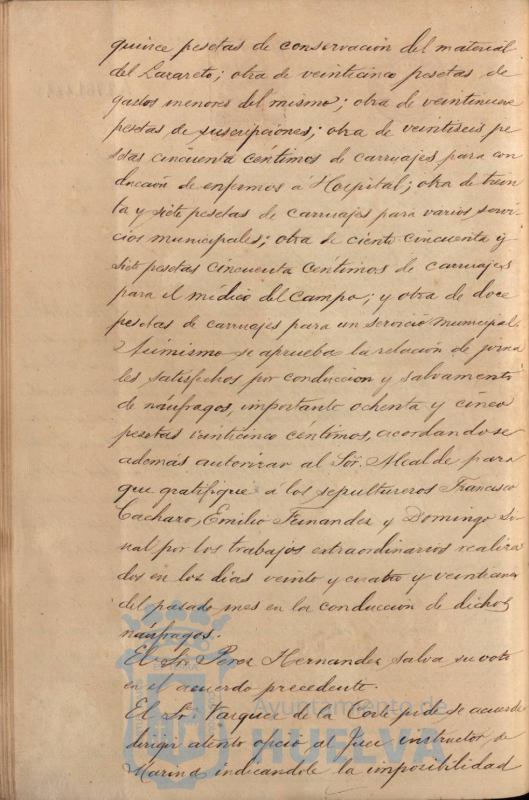 quince pesetas de conservación del material
del Lazareto; otra de veinticinco pesetas de
gastos menores del mismo; otra de veintinueve
pesetas de suscripciones; otra de veintiseis pe
setas cincuenta céntimos de carruajes para con
ducción de enfermos á Hospital; otra de trein
ta y siete pesetas de carruajes para varios servi
cios municipales; otra de ciento cincuenta y
siete pesetas cincuenta céntimos de carruajes
para el médico del Campo; y otra de doce
pesetas de carruajes para un servicio municipal.
Asimismo se aprueba la relación de jorna
les satisfechos por conduccion y salvamento
de náufragos, importante ochenta y cinco
pesetas veinticinco céntimos, acordandose
además autorizar al Sor. Alcalde para
que gratifique á los sepultureros Francisco
Cacharo, Emilio Fernandez y Domingo
nal por los trabajos extraordinarios realiza
dos en los dias veinte y cuatro y veinticinco
del pasado mes en la conducción de dichos
náufragos.
El Sr. Perez Hernandez salva su voto
en el acuerdo precedente.
El Sr. Vazquez de la Corte pide se acuerde
dirigir atento oficio al Juez instructor de
Marina indicandole la imposibilidad
Ayuntamiento de
HUELVA